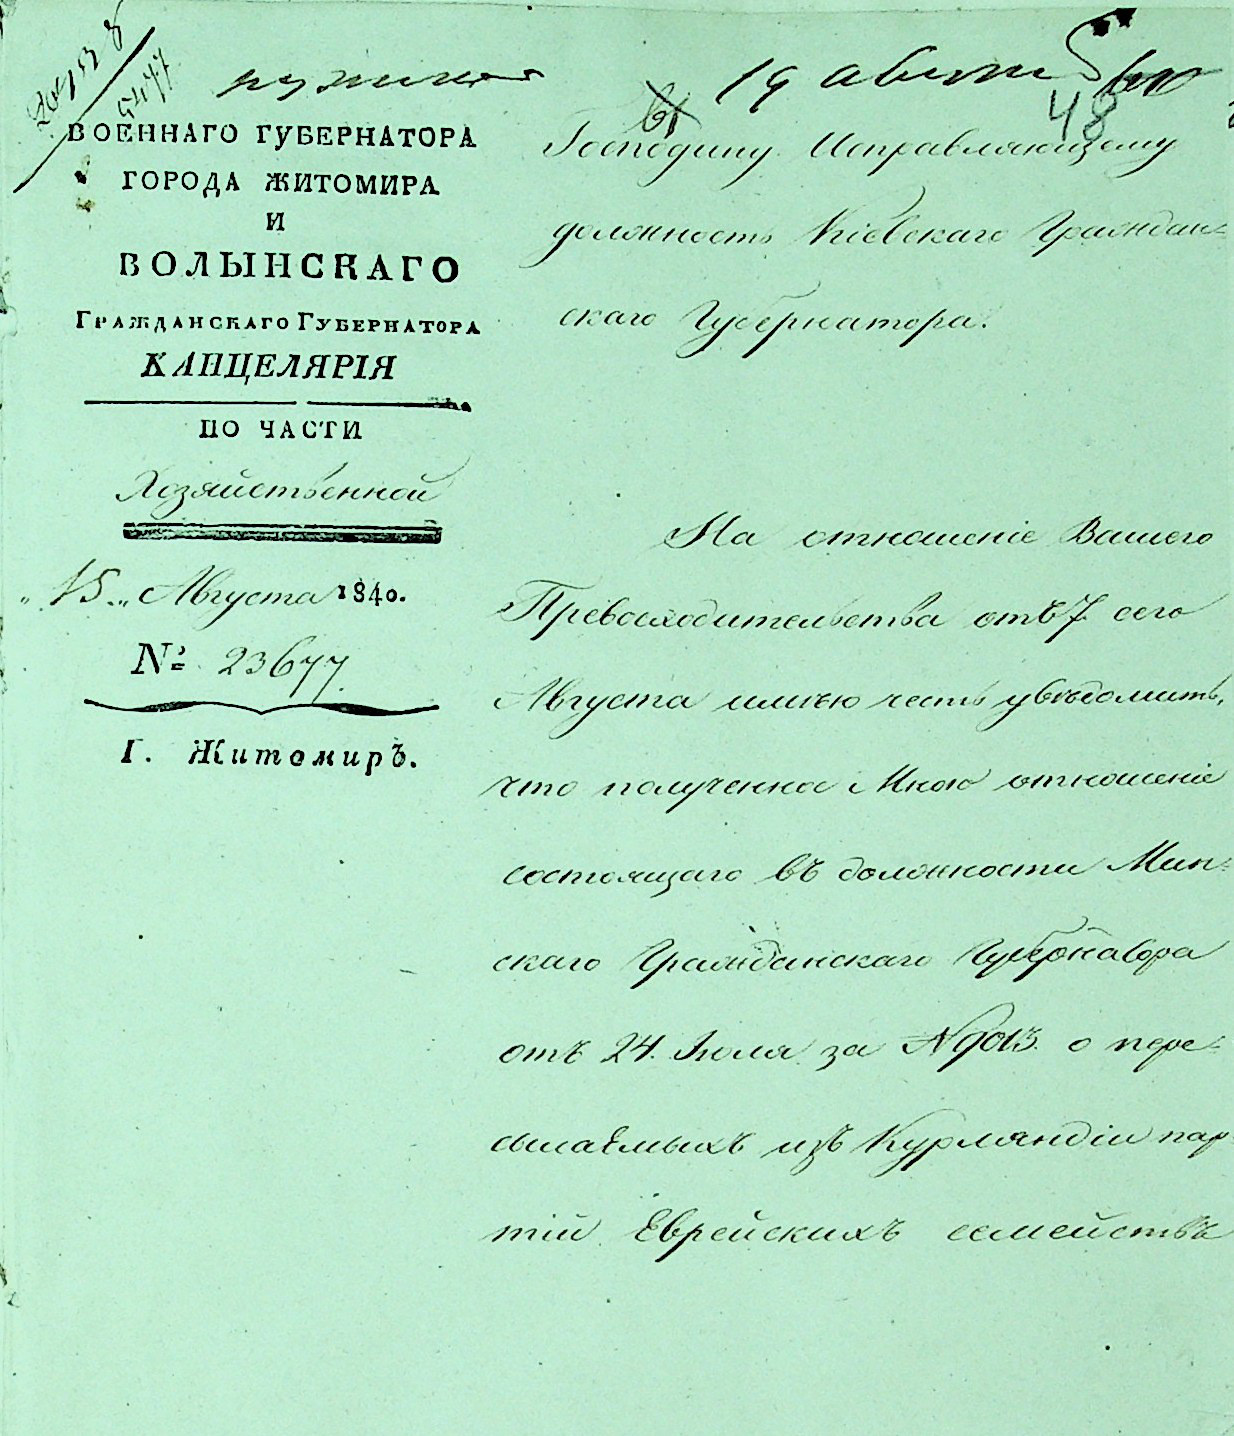 нужное
19 августа
48
ВОЕННАГО ГУБЕРНАТОРА
ГОРОДА ЖИТОМИРА
И
ВОЛЫНСКАГО
ГРАЖДАНСКАГО ГУБЕРНАТОРА
КАНЦЕЛЯРІЯ
ПО ЧАСТИ
Хозяйственной
„15„ Августа 1840.
№ 23677.
Г. Житомиръ.
Господину Исправляющему
должность Кіевскаго Граждан=
скаго Губернатора.
На отношеніе Вашего
Превосходительства отъ 7 сего
Августа имѣю честь увѣдомить,
что полученное Мною отношеніе
состоящаго въ должности Мин=
скаго Гражданскаго Губернатора
отъ 24. Іюля за № 9013. о пере=
сылаемыхъ изъ Курляндіи пар
тій Еврейскихъ семействъ